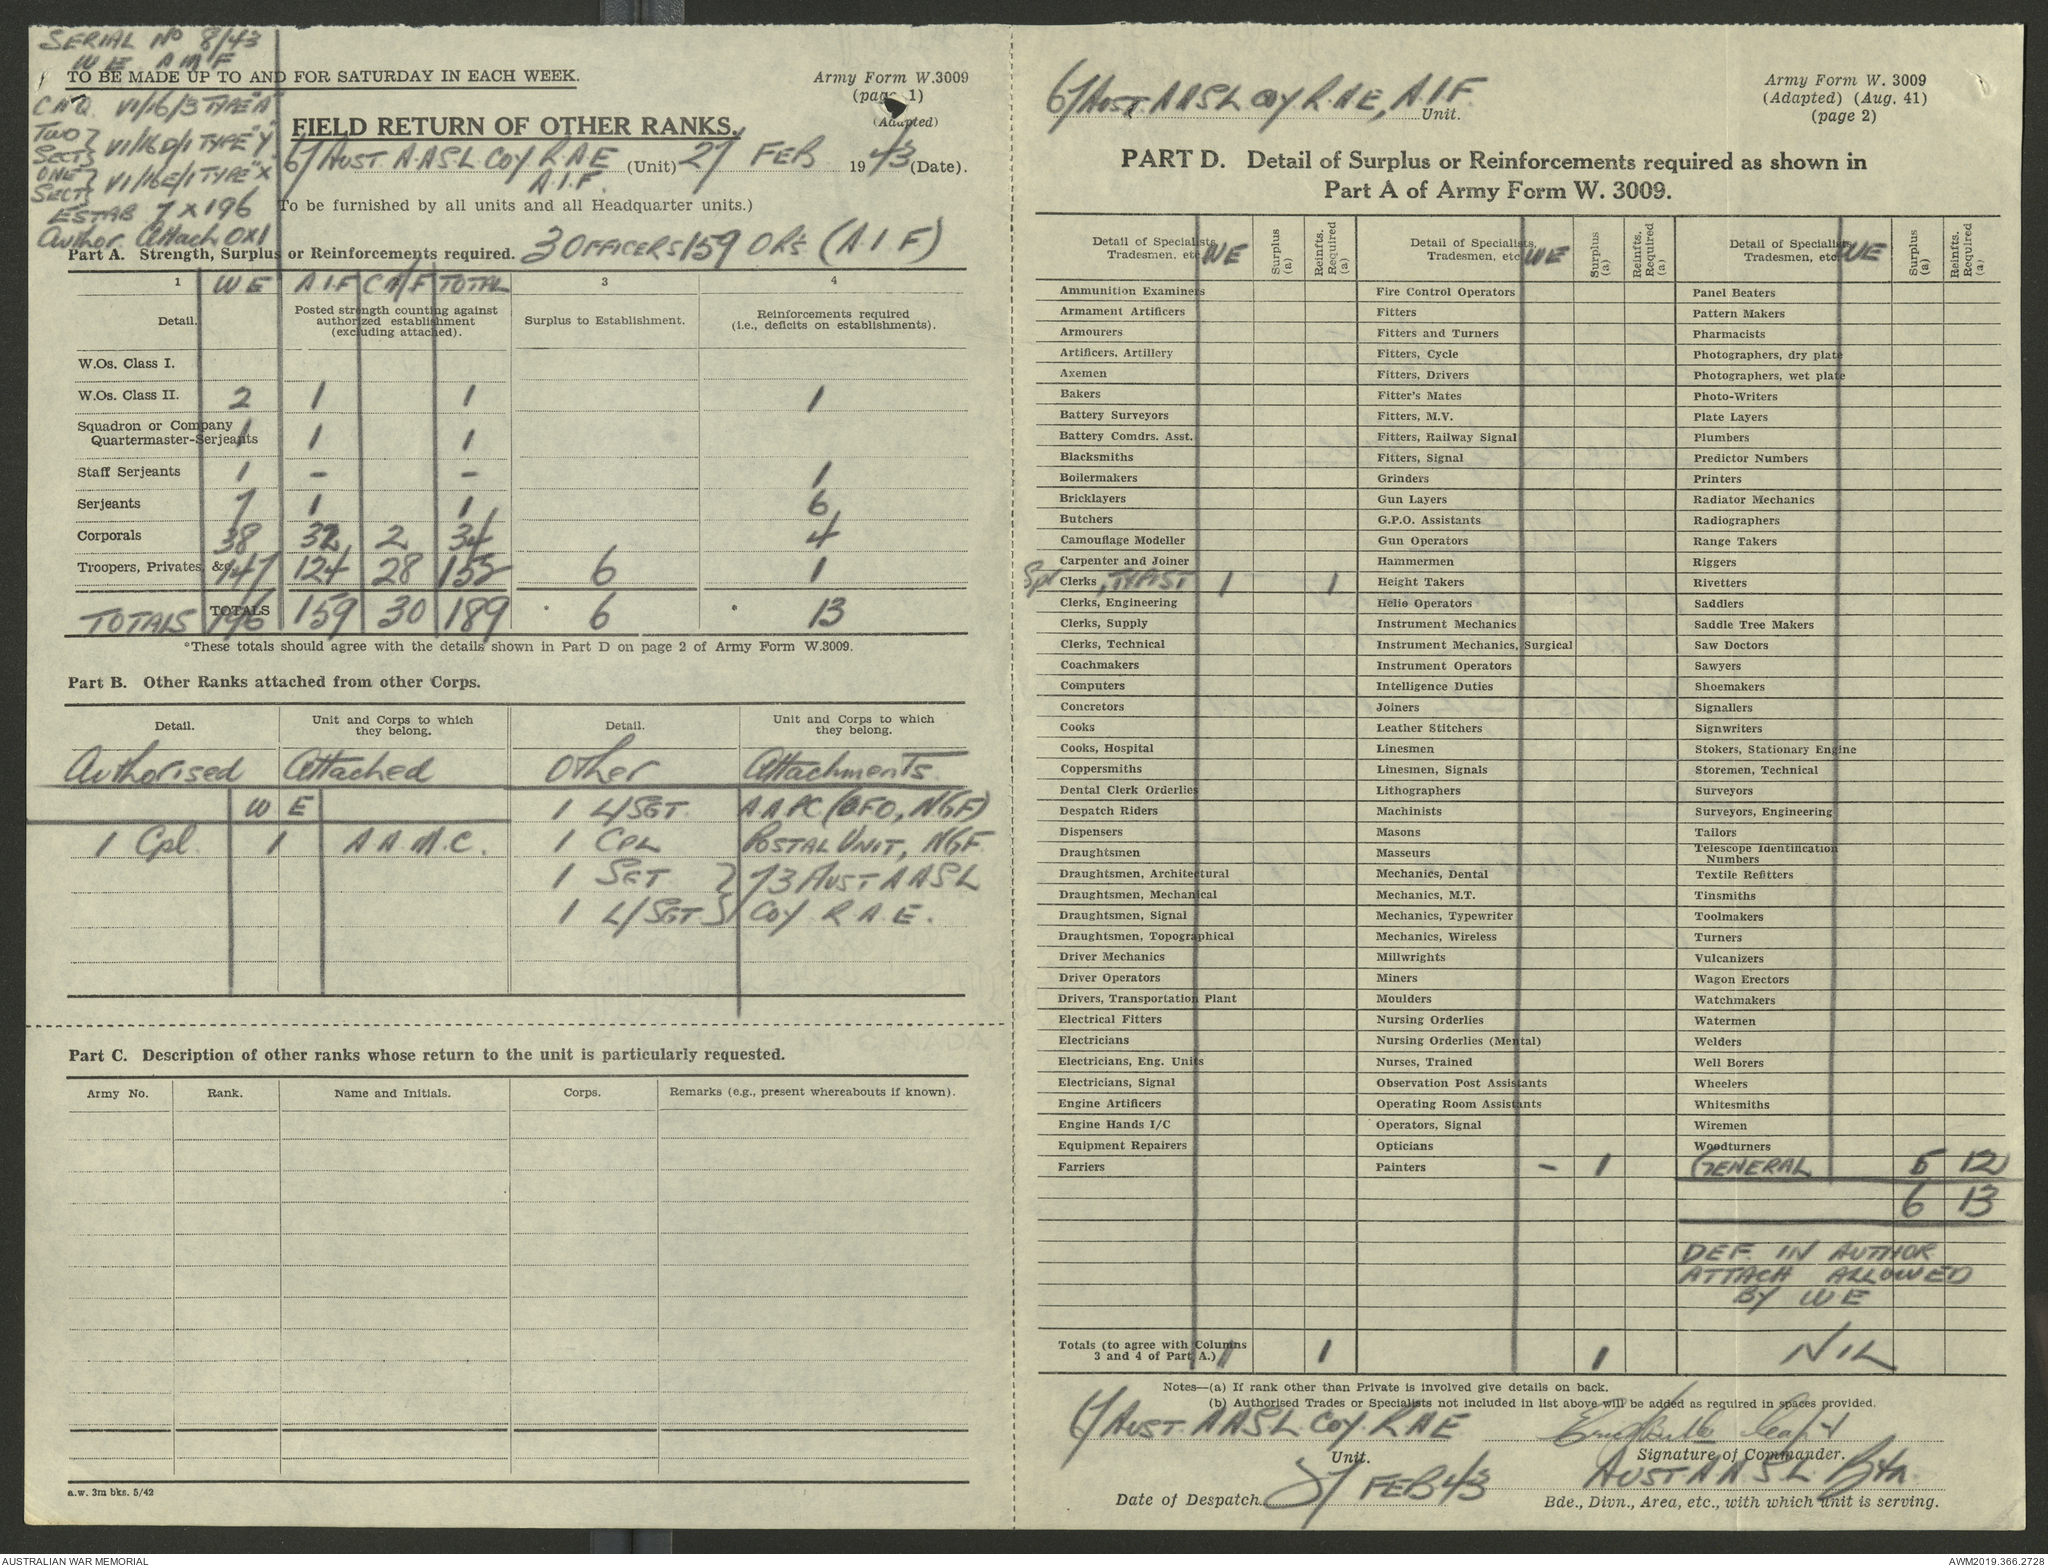 SERIAL No 8/43
W E A M F
TO BE MADE UP TO AND FOR SATURDAY IN EACH WEEK.
Army Form W.3009
(page 1)
(Adapted)
VI/16/3 TYPE "A"
TWO } VI/16D/1 TYPE "Y"
SECTS
ONE } VI/16E/1 TYPE "X"
SECTS
ESTAB 7 x 196
Author Attach OX1
FIELD RETURN OF OTHER RANKS.
67 AUST. A.A.S.L COY R.A.E (Unit) 27 FEB 1943 (Date).
A.I.F.
To be furnished by all units and all Headquarter units.)
3 OFFICERS 159 OR's (A.I.F)
Part A. Strength, Surplus or Reinforcements required.
1 W E A.I.F C M F TOTAL 3 4
Detail. Posted strength counting against authorized establishment (excluding attached). Surplus to Establishment. Reinforcements required (i.e., deficits on establishments).
W.Os. Class I.
W.Os. Class II. 2 1 1 1
Squadron or Company Quartermaster-Serjeants 1 1 1
Staff Serjeants 1 - - 1
Serjeants 7 1 1 6
Corporals 38 32 2 34 4
Troopers, Privates, &c. 147 124 28 152 6 1
TOTALS TOTALS 196 159 30 189 6 13
*These totals should agree with the details shown in Part D on page 2 of Army Form W.3009.
Part B. Other Ranks attached from other Corps.
Detail. Unit and Corps to which they belong. Detail. Unit and Corps to which they belong.
Authorised Attached Other Attachments
W E 1 L/SGT. A.A.P.C (DFO, NGF)
1 Cpl. 1 A.A.M.C. 1 CPL POSTAL UNIT, NGF
1 SGT } 73 AUST AASL
1 L/SGT. } COY R.A.E.
Part C. Description of other ranks whose return to the unit is particularly requested.
Army No. Rank. Name and Initials. Corps. Remarks (e.g., present whereabouts if known).
a.w. 3m bks. 5/42
67 AUST. AASL COY R.A.E, A.I.F. Unit.
Army Form W. 3009
(Adapted) (Aug. 41)
(page 2)
PART D. Detail of Surplus or Reinforcements required as shown in
Part A of Army Form W. 3009.
Detail of Specialists, Tradesmen, etc. WE Surplus (a) Reinfts. Required (a) Detail of Specialists, Tradesmen, etc. WE Surplus (a) Reinfts. Required (a) Detail of Specialists, Tradesmen, etc. WE Surplus (a) Reinfts. Required (a)
Ammunition Examiners Fire Control Operators Panel Beaters
Armament Artificers Fitters Pattern Makers
Armourers Fitters and Turners Pharmacists
Artificers, Artillery Fitters, Cycle Photographers, dry plate
Axemen Fitters, Drivers Photographers, wet plate
Bakers Fitter's Mates Photo-Writers
Battery Surveyors Fitters, M.V. Plate Layers
Battery Comdrs. Asst. Fitters, Railway Signal Plumbers
Blacksmiths Fitters, Signal Predictor Numbers
Boilermakers Grinders Printers
Bricklayers Gun Layers Radiator Mechanics
Butchers G.P.O. Assistants Radiographers
Camouflage Modeller Gun Operators Range Takers
Carpenter and Joiner Hammermen Riggers
Clerks, TYPIST 1 1 Height Takers Rivetters
Clerks, Engineering Helio Operators Saddlers
Clerks, Supply Instrument Mechanics Saddle Tree Makers
Clerks, Technical Instrument Mechanics, Surgical Saw Doctors
Coachmakers Instrument Operators Sawyers
Computers Intelligence Duties Shoemakers
Concretors Joiners Signallers
Cooks Leather Stitchers Signwriters
Cooks, Hospital Linesmen Stokers, Stationary Engine
Coppersmiths Linesmen, Signals Storemen, Technical
Dental Clerk Orderlies Lithographers Surveyors
Despatch Riders Machinists Surveyors, Engineering
Dispensers Masons Tailors
Draughtsmen Masseurs Telescope Identification Numbers
Draughtsmen, Architectural Mechanics, Dental Textile Refitters
Draughtsmen, Mechanical Mechanics, M.T. Tinsmiths
Draughtsmen, Signal Mechanics, Typewriter Toolmakers
Draughtsmen, Topographical Mechanics, Wireless Turners
Driver Mechanics Millwrights Vulcanizers
Driver Operators Miners Wagon Erectors
Drivers, Transportation Plant Moulders Watchmakers
Electrical Fitters Nursing Orderlies Watermen
Electricians Nursing Orderlies (Mental) Welders
Electricians, Eng. Units Nurses, Trained Well Borers
Electricians, Signal Observation Post Assistants Wheelers
Engine Artificers Operating Room Assistants Whitesmiths
Engine Hands I/C Operators, Signal Wiremen
Equipment Repairers Opticians Woodturners
Farriers Painters - 1 GENERAL 5 12
6 13
DEF. IN AUTHOR
ATTACH ALLOWED
BY WE
Totals (to agree with Columns 3 and 4 of Part A.) 1 1 1 NIL
Notes—(a) If rank other than Private is involved give details on back.
(b) Authorised Trades or Specialists not included in list above will be added as required in spaces provided.
67 AUST. AA.S.L. COY. R.A.E
Unit. Signature of Commander.
AUST AASL Btn.
Date of Despatch 27 FEB 43 Bde., Divn., Area, etc., with which unit is serving.
AUSTRALIAN WAR MEMORIAL
AWM2019.366.2728